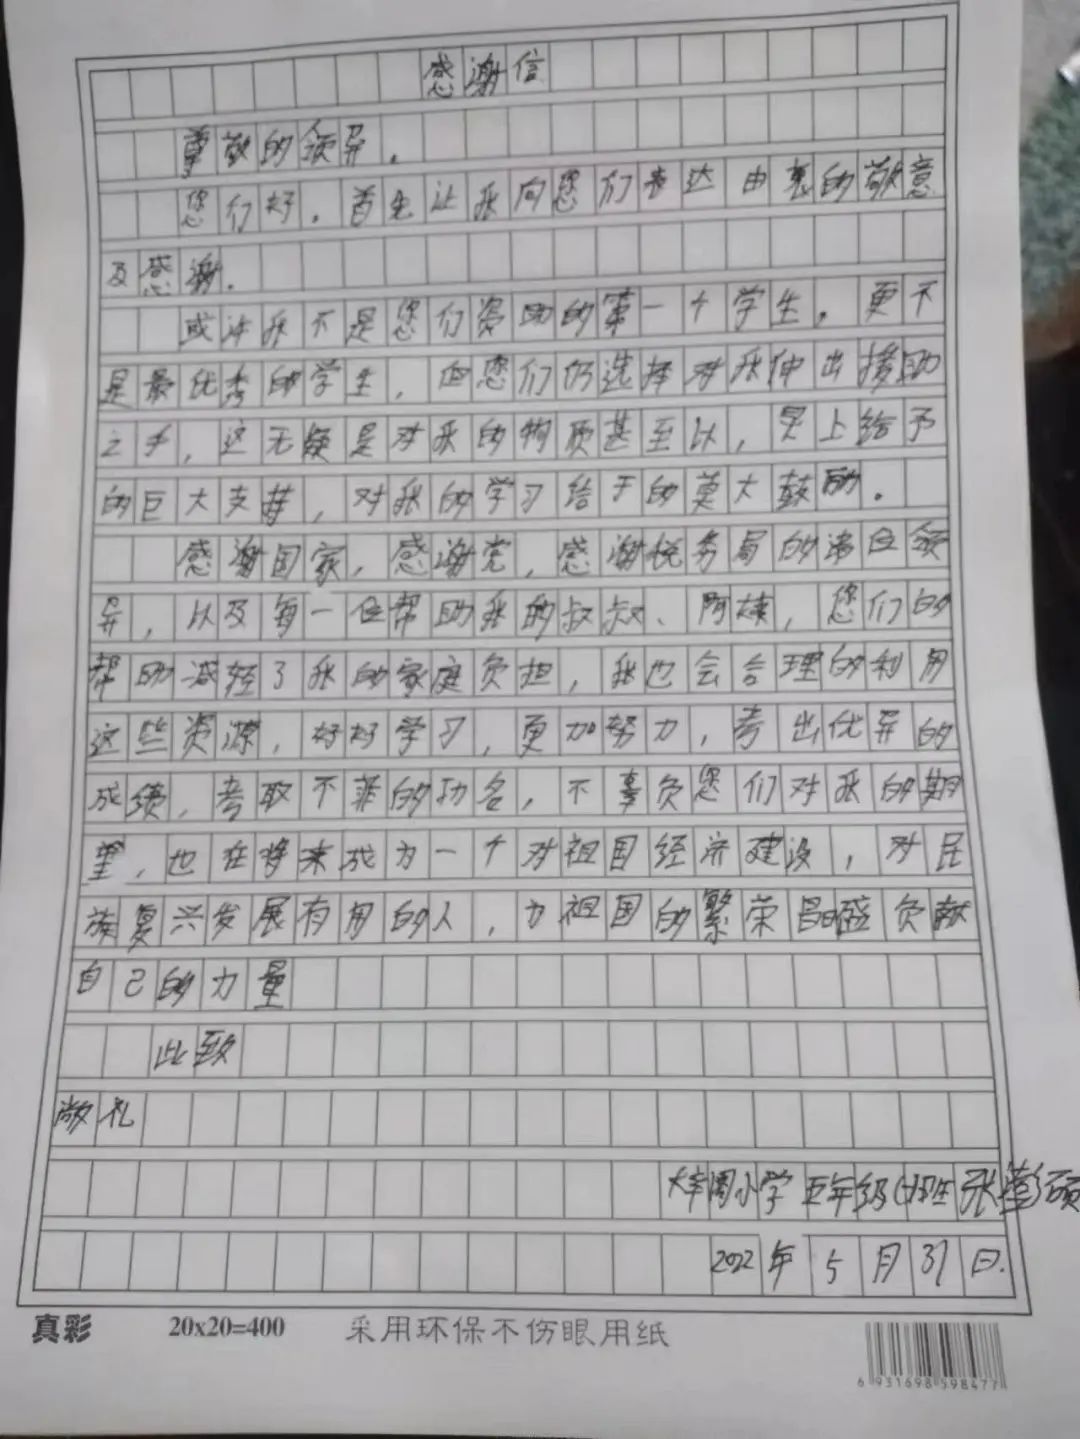 感谢信
尊敬的领导.
您们好.首先让我向您们表达由衷的敬意
及感谢.
或许我不是您们资助的第一个学生,更不
是最优秀的学生,但您们仍选择对我伸出援助
之手,这无疑是对我的物质甚至以,灵上给予
的巨大支持,对我的学习给于的莫大鼓励.
感谢国家,感谢党,感谢税务局的诸位领
导,以及每一位帮助我的叔叔、阿姨,您们的
帮助减轻了我的家庭负担,我也会合理的利用
这些资源,好好学习,更加努力,考出优异的
成绩,考取不菲的功名,不辜负您们对我的期
望,也在将来成为一个对祖国经济建设,对民
族复兴发展有用的人,为祖国的繁荣昌盛负献
自己的力量
此致
敬礼
小学 五年级 张澎硕
2022年5月31日.
真彩 20x20=400 采用环保不伤眼用纸
6 931698 598477